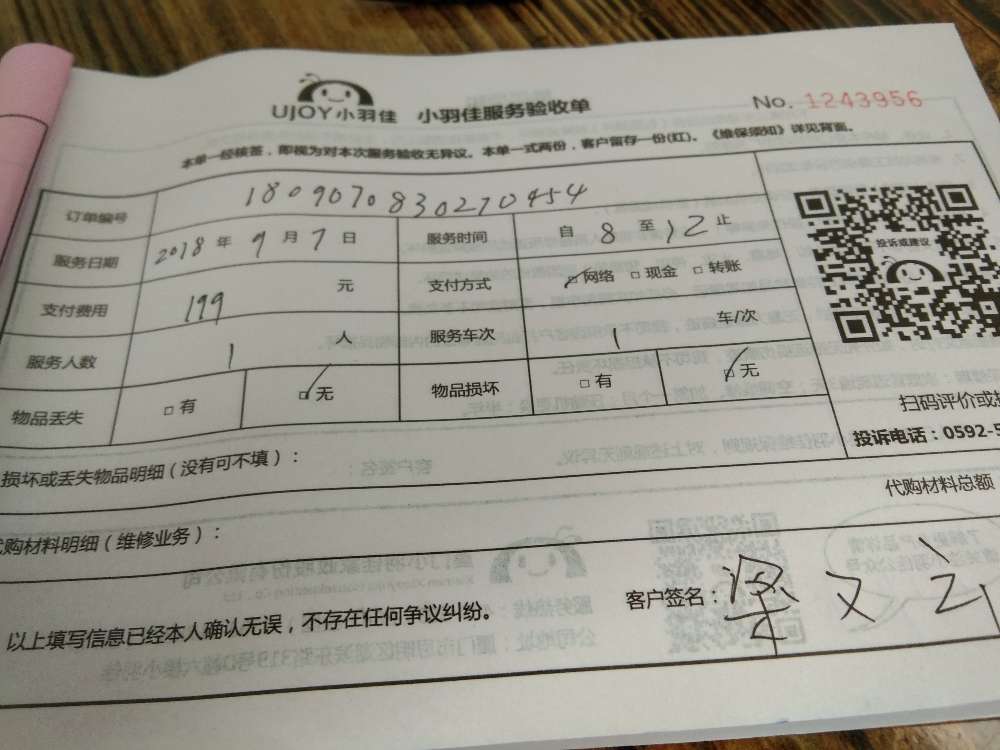 UJOY小羽佳 小羽佳服务验收单 No. 1243956
本单一经核签，即视为对本次服务验收无异议。本单一式两份，客户留存一份(红)。《维保须知》详见背面。
订单编号 180907083027045 4
服务日期 2018年9月7日 服务时间 自8至12止
支付费用 199元 支付方式 □网络 □现金 □转账
服务人数 1人 服务车次 1车/次
物品丢失 □有 □无 物品损坏 □有 □无
投诉或建议
扫码评价或
投诉电话：0592-5
损坏或丢失物品明细（没有可不填）：
代购材料总额
购材料明细（维修业务）：
以上填写信息已经本人确认无误，不存在任何争议纠纷。
客户签名：梁又